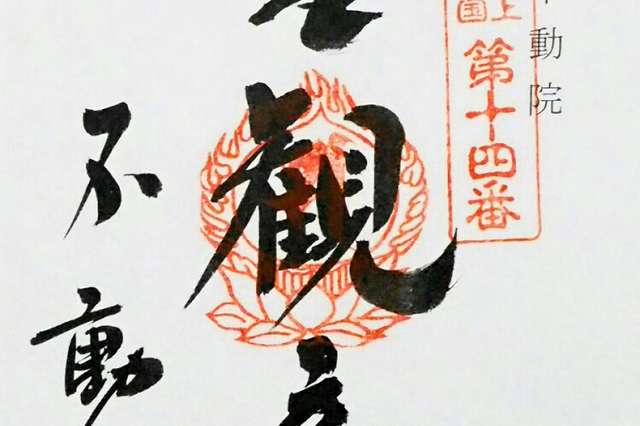 動院
上
国
第十四番
観
不動